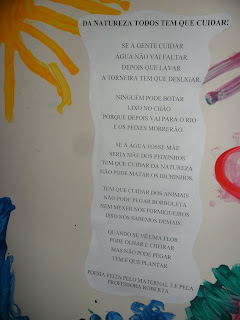 DA NATUREZA TODOS TEM QUE CUIDAR!
SE A GENTE CUIDAR
ÁGUA NÃO VAI FALTAR
DEPOIS QUE LAVAR
A TORNEIRA TEM QUE DESLIGAR.
NINGUÉM PODE BOTAR
LIXO NO CHÃO
PORQUE DEPOIS VAI PARA O RIO
E OS PEIXES MORRERÃO.
SE A ÁGUA FOSSE MÃE
SERIA MÃE DOS PEIXINHOS
TEM QUE CUIDAR DA NATUREZA
NÃO PODE MATAR OS BICHINHOS.
TEM QUE CUIDAR DOS ANIMAIS
NÃO PODE PEGAR BORBOLETA
NEM MEXER NOS FORMIGUEIROS
ISSO NÓS SABEMOS DEMAIS.
QUANDO SE VÊ UMA FLOR
PODE OLHAR E CHEIRAR
MAS NÃO PODE PEGAR
TEM É QUE PLANTAR
POEMA FEITA PELO MATERNAL 3 E PELA
PROFESSORA ROBERTA